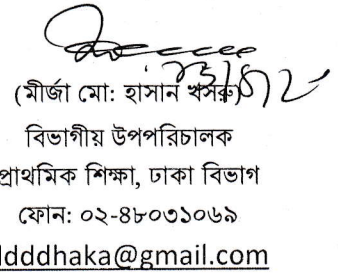 (মীর্জা মো: হাসান খসরু)
বিভাগীয় উপপরিচালক
প্রাথমিক শিক্ষা, ঢাকা বিভাগ
ফোন: ০২-৪৮০৩১০৬৯
ddddhaka@gmail.com